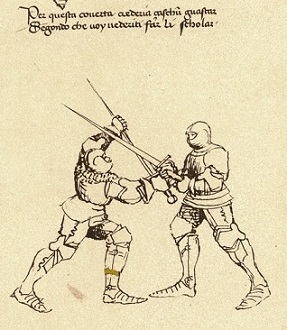 Per questa coverta crederia zaschũ guastar
Segondo che voy vederiti far li scholar